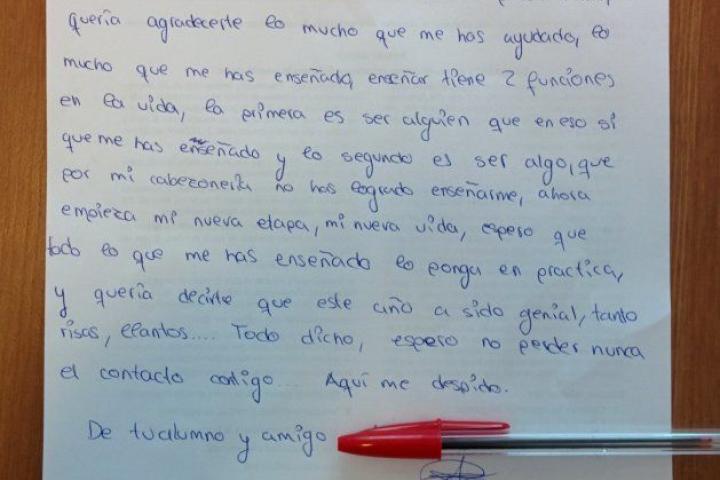 quería agradecerte lo mucho que me has ayudado, lo
mucho que me has enseñado, enseñar tiene 2 funciones
en la vida, la primera es ser alguien que en eso si
que me has enseñado y lo segundo es ser algo, que
por mi cabezonería no has logrado enseñarme, ahora
empieza mi nueva etapa, mi nueva vida, espero que
todo lo que me has enseñado lo ponga en practica,
y quería decirte que este año a sido genial, tanto
risas, llantos.... Todo dicho, espero no perder nunca
el contacto contigo... Aquí me despido.
De tu alumno y amigo